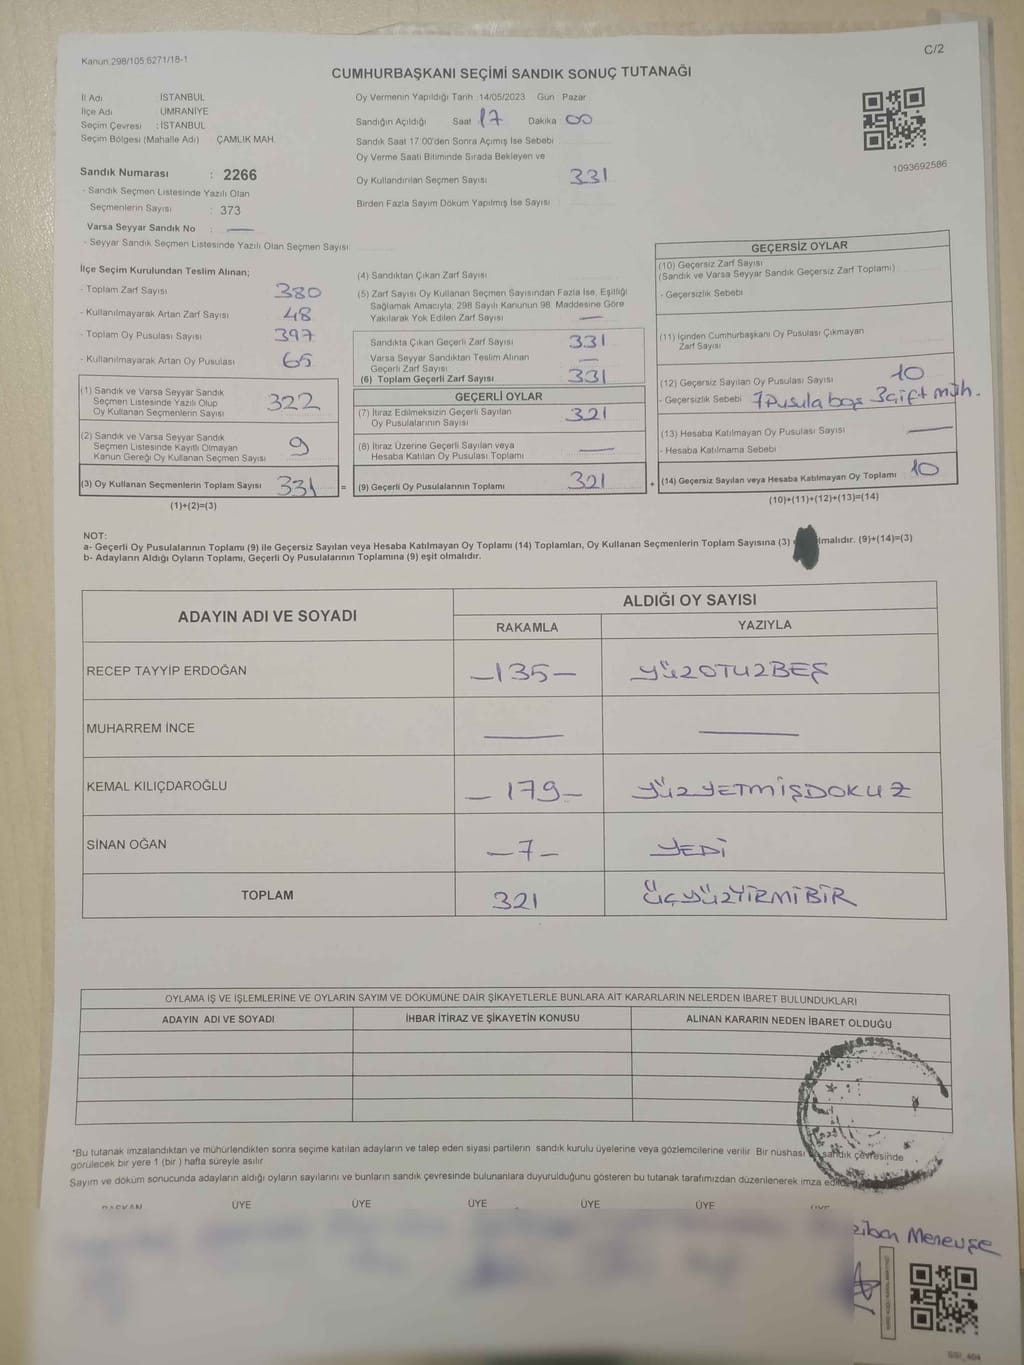 Kanun 298/105,6271/18-1
C/2
CUMHURBAŞKANI SEÇİMİ SANDIK SONUÇ TUTANAĞI
İl Adı İSTANBUL
İlçe Adı ÜMRANİYE
Seçim Çevresi : İSTANBUL
Seçim Bölgesi (Mahalle Adı) ÇAMLIK MAH.
Sandık Numarası : 2266
- Sandık Seçmen Listesinde Yazılı Olan
Seçmenlerin Sayısı : 373
Varsa Seyyar Sandık No : —
- Seyyar Sandık Seçmen Listesinde Yazılı Olan Seçmen Sayısı
Oy Vermenin Yapıldığı Tarih 14/05/2023 Gün Pazar
Sandığın Açıldığı Saat 17 Dakika 00
Sandık Saat 17.00'den Sonra Açımış İse Sebebi
Oy Verme Saati Bitiminde Sırada Bekleyen ve
Oy Kullandırılan Seçmen Sayısı 331
Birden Fazla Sayım Döküm Yapılmış İse Sayısı
1093692586
İlçe Seçim Kurulundan Teslim Alınan;
- Toplam Zarf Sayısı 380
- Kullanılmayarak Artan Zarf Sayısı 48
- Toplam Oy Pusulası Sayısı 397
- Kullanılmayarak Artan Oy Pusulası 65
(1) Sandık ve Varsa Seyyar Sandık
Seçmen Listesinde Yazılı Olup
Oy Kullanan Seçmenlerin Sayısı 322
(2) Sandık ve Varsa Seyyar Sandık
Seçmen Listesinde Kayıtlı Olmayan
Kanun Gereği Oy Kullanan Seçmen Sayısı 9
(3) Oy Kullanan Seçmenlerin Toplam Sayısı 331 =
(1)+(2)=(3)
(4) Sandıktan Çıkan Zarf Sayısı
(5) Zarf Sayısı Oy Kullanan Seçmen Sayısından Fazla İse, Eşitliği
Sağlamak Amacıyla; 298 Sayılı Kanunun 98. Maddesine Göre
Yakılarak Yok Edilen Zarf Sayısı —
Sandıkta Çıkan Geçerli Zarf Sayısı 331
Varsa Seyyar Sandıktan Teslim Alınan
Geçerli Zarf Sayısı —
(6) Toplam Geçerli Zarf Sayısı 331
GEÇERLİ OYLAR
(7) İtiraz Edilmeksizin Geçerli Sayılan
Oy Pusulalarının Sayısı 321
(8) İtiraz Üzerine Geçerli Sayılan veya
Hesaba Katılan Oy Pusulası Toplamı —
(9) Geçerli Oy Pusulalarının Toplamı 321 +
GEÇERSİZ OYLAR
(10) Geçersiz Zarf Sayısı
(Sandık ve Varsa Seyyar Sandık Geçersiz Zarf Toplamı)
- Geçersizlik Sebebi
(11) İçinden Cumhurbaşkanı Oy Pusulası Çıkmayan
Zarf Sayısı
(12) Geçersiz Sayılan Oy Pusulası Sayısı 10
- Geçersizlik Sebebi 7 Pusula boş 3 çift müh.
(13) Hesaba Katılmayan Oy Pusulası Sayısı —
- Hesaba Katılmama Sebebi
(14) Geçersiz Sayılan veya Hesaba Katılmayan Oy Toplamı 10
(10)+(11)+(12)+(13)=(14)
NOT:
a- Geçerli Oy Pusulalarının Toplamı (9) ile Geçersiz Sayılan veya Hesaba Katılmayan Oy Toplamı (14) Toplamları, Oy Kullanan Seçmenlerin Toplam Sayısına (3) lmalıdır. (9)+(14)=(3)
b- Adayların Aldığı Oyların Toplamı, Geçerli Oy Pusulalarının Toplamına (9) eşit olmalıdır.
ADAYIN ADI VE SOYADI
ALDIĞI OY SAYISI
RAKAMLA YAZIYLA
RECEP TAYYİP ERDOĞAN —135— YÜZOTUZBEŞ
MUHARREM İNCE — —
KEMAL KILIÇDAROĞLU —179— YÜZYETMİŞDOKUZ
SİNAN OĞAN —7— YEDİ
TOPLAM 321 ÜÇYÜZYİRMİBİR
OYLAMA İŞ VE İŞLEMLERİNE VE OYLARIN SAYIM VE DÖKÜMÜNE DAİR ŞİKAYETLERLE BUNLARA AİT KARARLARIN NELERDEN İBARET BULUNDUKLARI
ADAYIN ADI VE SOYADI İHBAR İTİRAZ VE ŞİKAYETİN KONUSU ALINAN KARARIN NEDEN İBARET OLDUĞU
*Bu tutanak imzalandıktan ve mühürlendikten sonra seçime katılan adayların ve talep eden siyasi partilerin sandık kurulu üyelerine veya gözlemcilerine verilir. Bir nüshası da sandık çevresinde
görülecek bir yere 1 (bir ) hafta süreyle asılır.
Sayım ve döküm sonucunda adayların aldığı oyların sayılarını ve bunların sandık çevresinde bulunanlara duyurulduğunu gösteren bu tutanak tarafımızdan düzenlenerek imza edil
BAŞKAN ÜYE ÜYE ÜYE ÜYE ÜYE ÜYE
Meneuşe